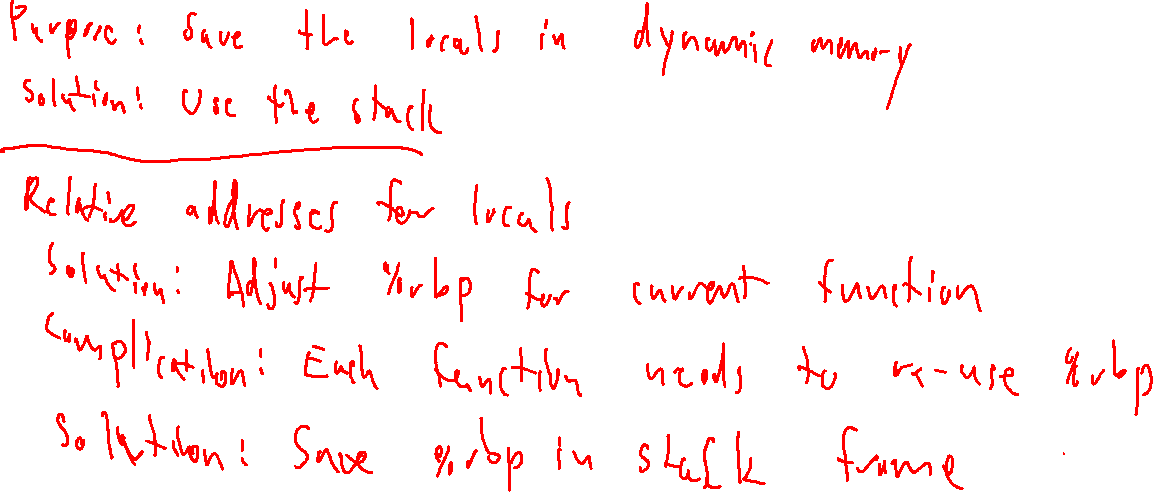 Purpose: Save the locals in dynamic memory
Solution: Use the stack
Relative addresses for locals
Solution: Adjust %rbp for current function
Complication: Each function needs to re-use %rbp
Solution: Save %rbp in stack frame